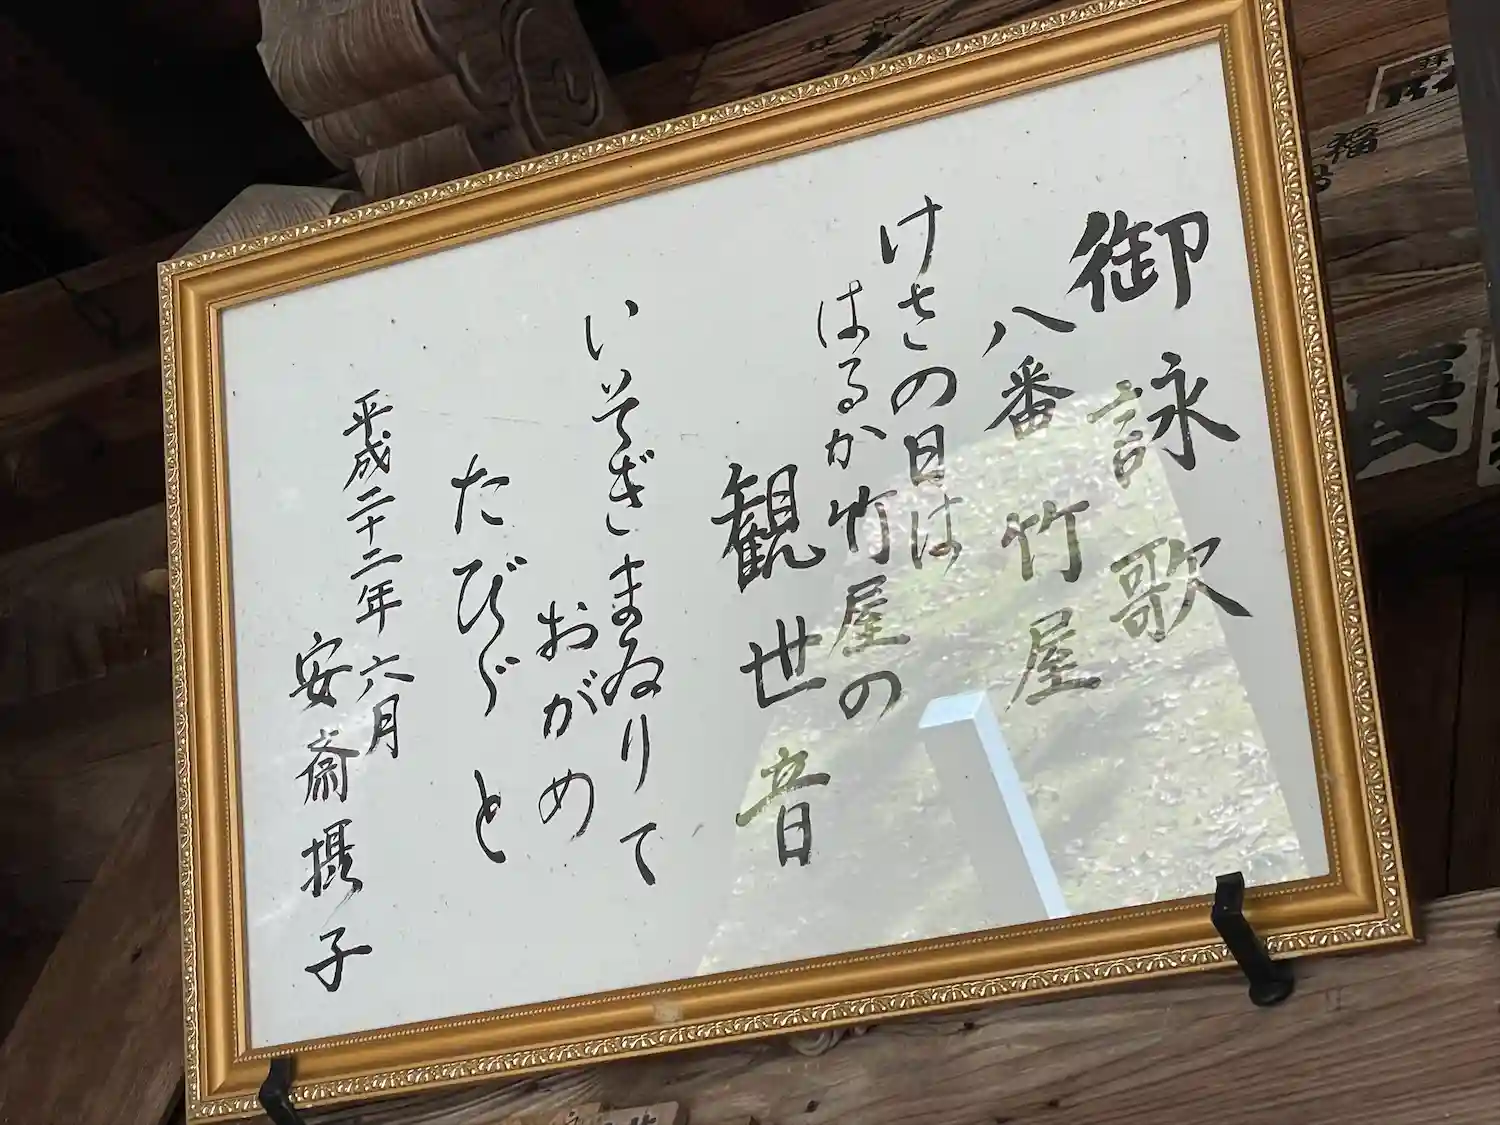 御詠歌
八番竹屋
けさの日は
はるか竹屋の
観世音
いそぎまゐりて
おがめ
たびゞと
平成二十二年六月
安斎摂子
福
長